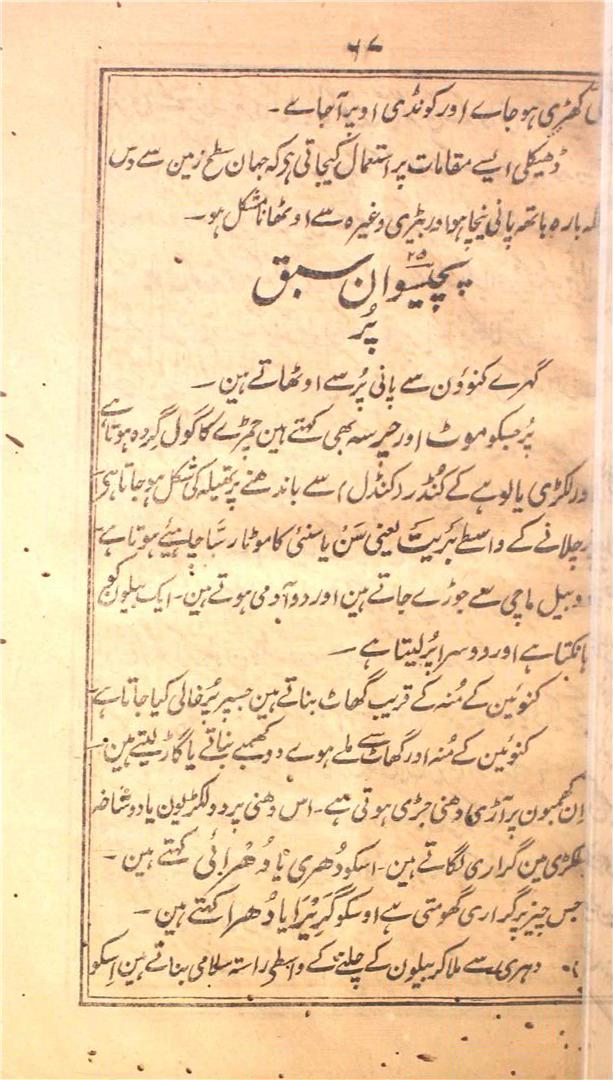 ۶۷
کھڑی ہو جاے اور کونڈی اوپر آجاے ۔
ڈھیکلی ایسے مقامات پر استعمال کیجاتی ہے کہ جہان سطح زمین سے دس
بارہ ہاتھ پانی نیچا ہو اور بیڑی وغیرہ سے اوٹھانا مشکل ہو ۔
۲۵
پچیسوان سبق
پُر
گہرے کنوؤن سے پانی پُر سے اوٹھاتے ہین ۔
پُر جسکو موٹ اور چرسہ بھی کہتے ہین چمڑے کا گول گردہ ہوتا ہے
اور لکڑی یا لوہے کے کُنڈر (کنڈل) سے باندھنے پر تھیلہ کی شکل ہو جاتا ہی
پُر چلانے کے واسطے بَریت یعنی سَن یا سنئی کا موٹا رسّا چاہیئے ہوتا ہے
دو بیل ماچی سے جوڑے جاتے ہین اور دو آدمی ہوتے ہین ۔ ایک بیلون کو
ہانکتا ہے اور دوسرا پُر لیتا ہے ۔
کنوئین کے مُنہ کے قریب گھاٹ بناتے ہین جسپر پُر خالی کیا جاتا ہے
کنوئین کے مُنہ اور گھاٹ سے ملے ہوے دو کھمبے بناتے یا گاڑ لیتے ہین
اِن کھمبون پر آڑی دھنی جڑی ہوتی ہے ۔ اس دھنی پر دو لکڑیون یا دو شاخہ
لکڑی مین گراری لگاتے ہین ۔ اسکو دُھری یا دُھرائی کہتے ہین ۔
جس چیز پر گراری گھومتی ہے اوسکو گَرِیرَا یا دُھرا کہتے ہین ۔
دہری سے ملا کر بیلون کے چلنے کے واسطے راستہ سلامی بناتے ہین اِسکو